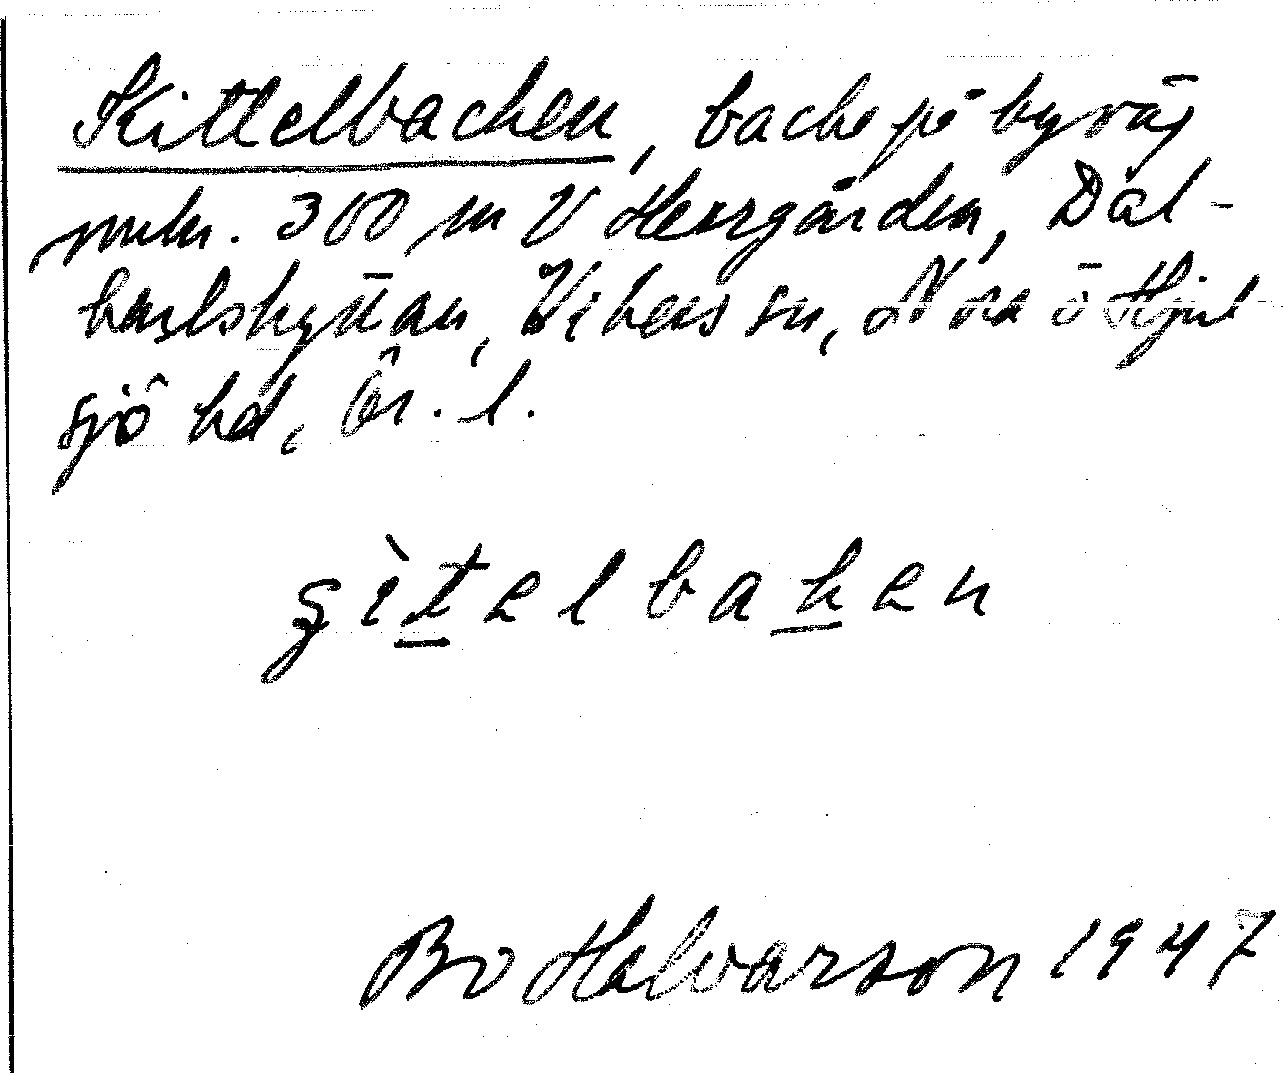 Kittelbacken, backe på byväg
omkr. 300 m V Herrgården, Dal-
karlshyttan, Vikers sn, Nora o Hjul
sjö hd, Ör. l.
gìtelbaken
Bo Halvarson 1947